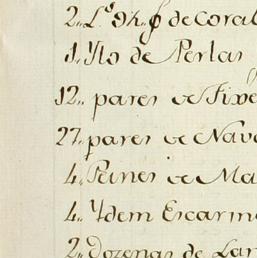 2,, L.s 9k,, de Coral
1,, Ylo de Perlas
12,, pares de Tixe
27,, pares de Nava
4,, Peines de Ma
4,, Ydem Escarm
2,, Dozenas de Lan